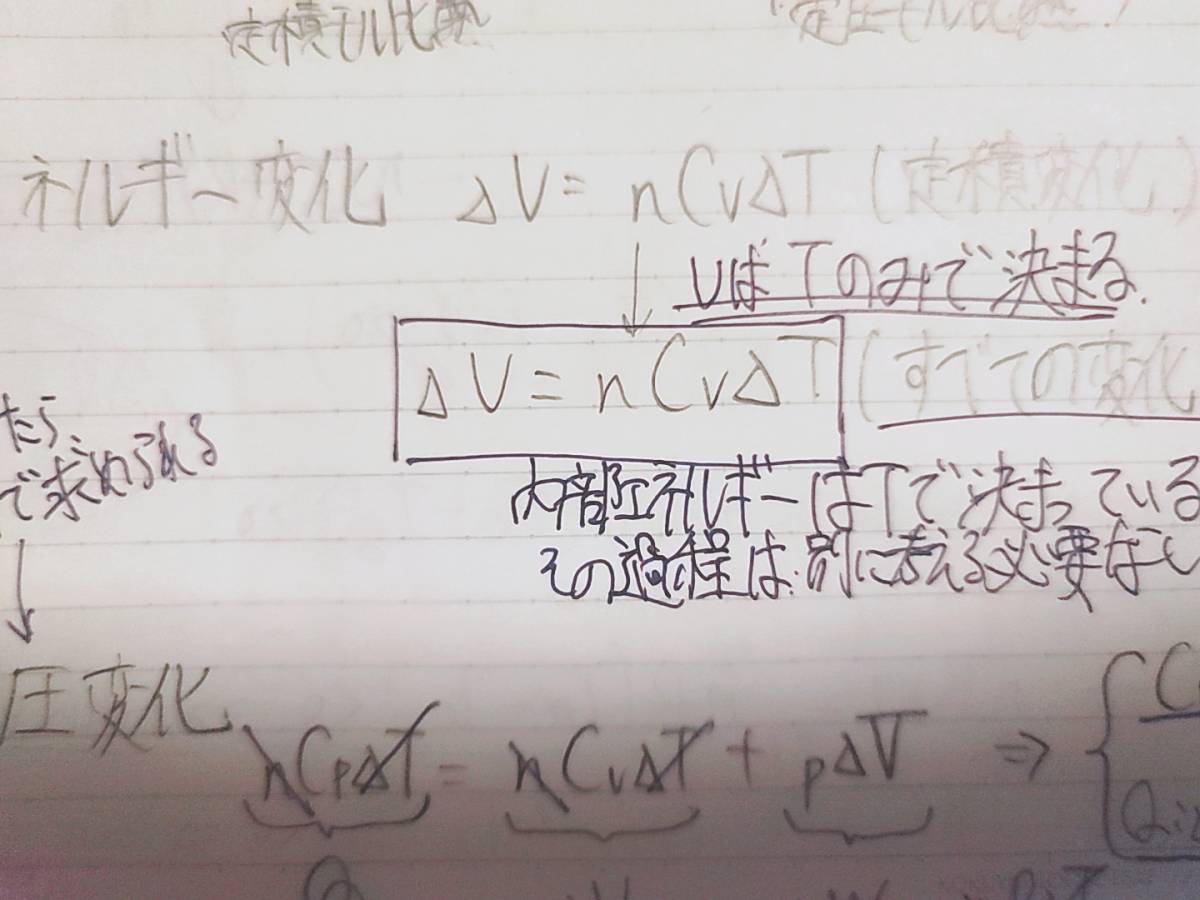 定積モル比熱 定圧モル比熱
ネルギー変化 ΔU = nCvΔT (定積変化)
UはTのみで決まる.
ΔU = nCvΔT (すべての変化
たら
で求められる
内部エネルギーはTで決まっている
その過程は別に考える必要なし
圧変化
nCpΔT = nCvΔT + pΔV ⇒ {
Q